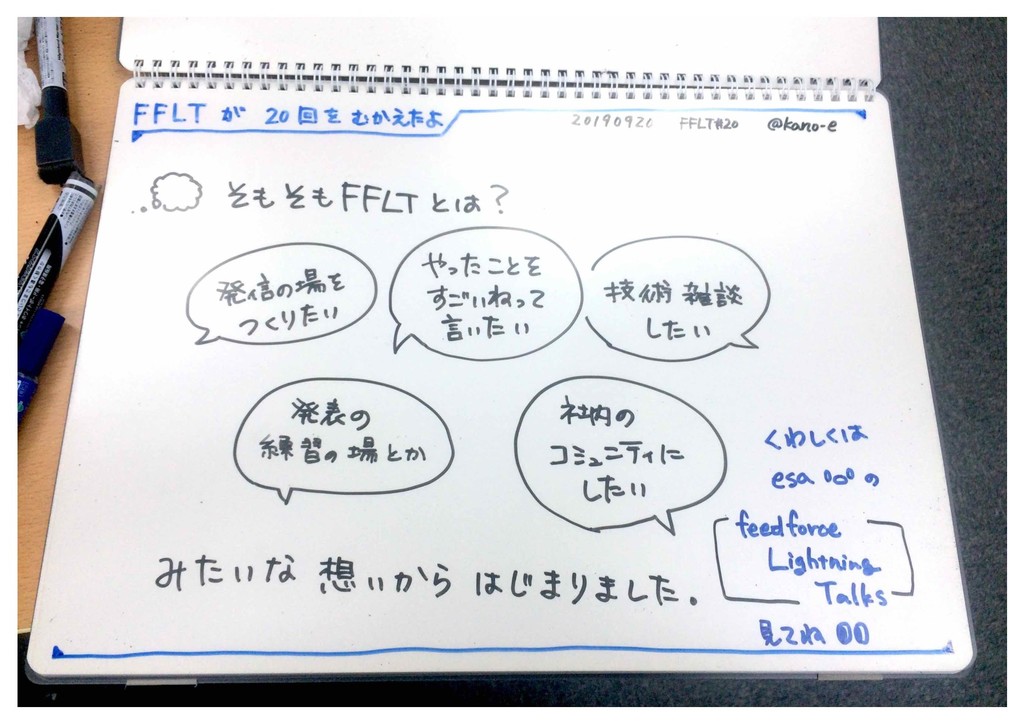 FFLT が 20回をむかえたよ
20190920 FFLT#20 @kano-e
そもそもFFLTとは?
発信の場を
つくりたい
やったことを
すごいねって
言いたい
技術雑談
したい
発表の
練習の場とか
社内の
コミュニティに
したい
みたいな 想いから はじまりました。
くわしくは
esa の
feedforce
Lightning
Talks
見てね